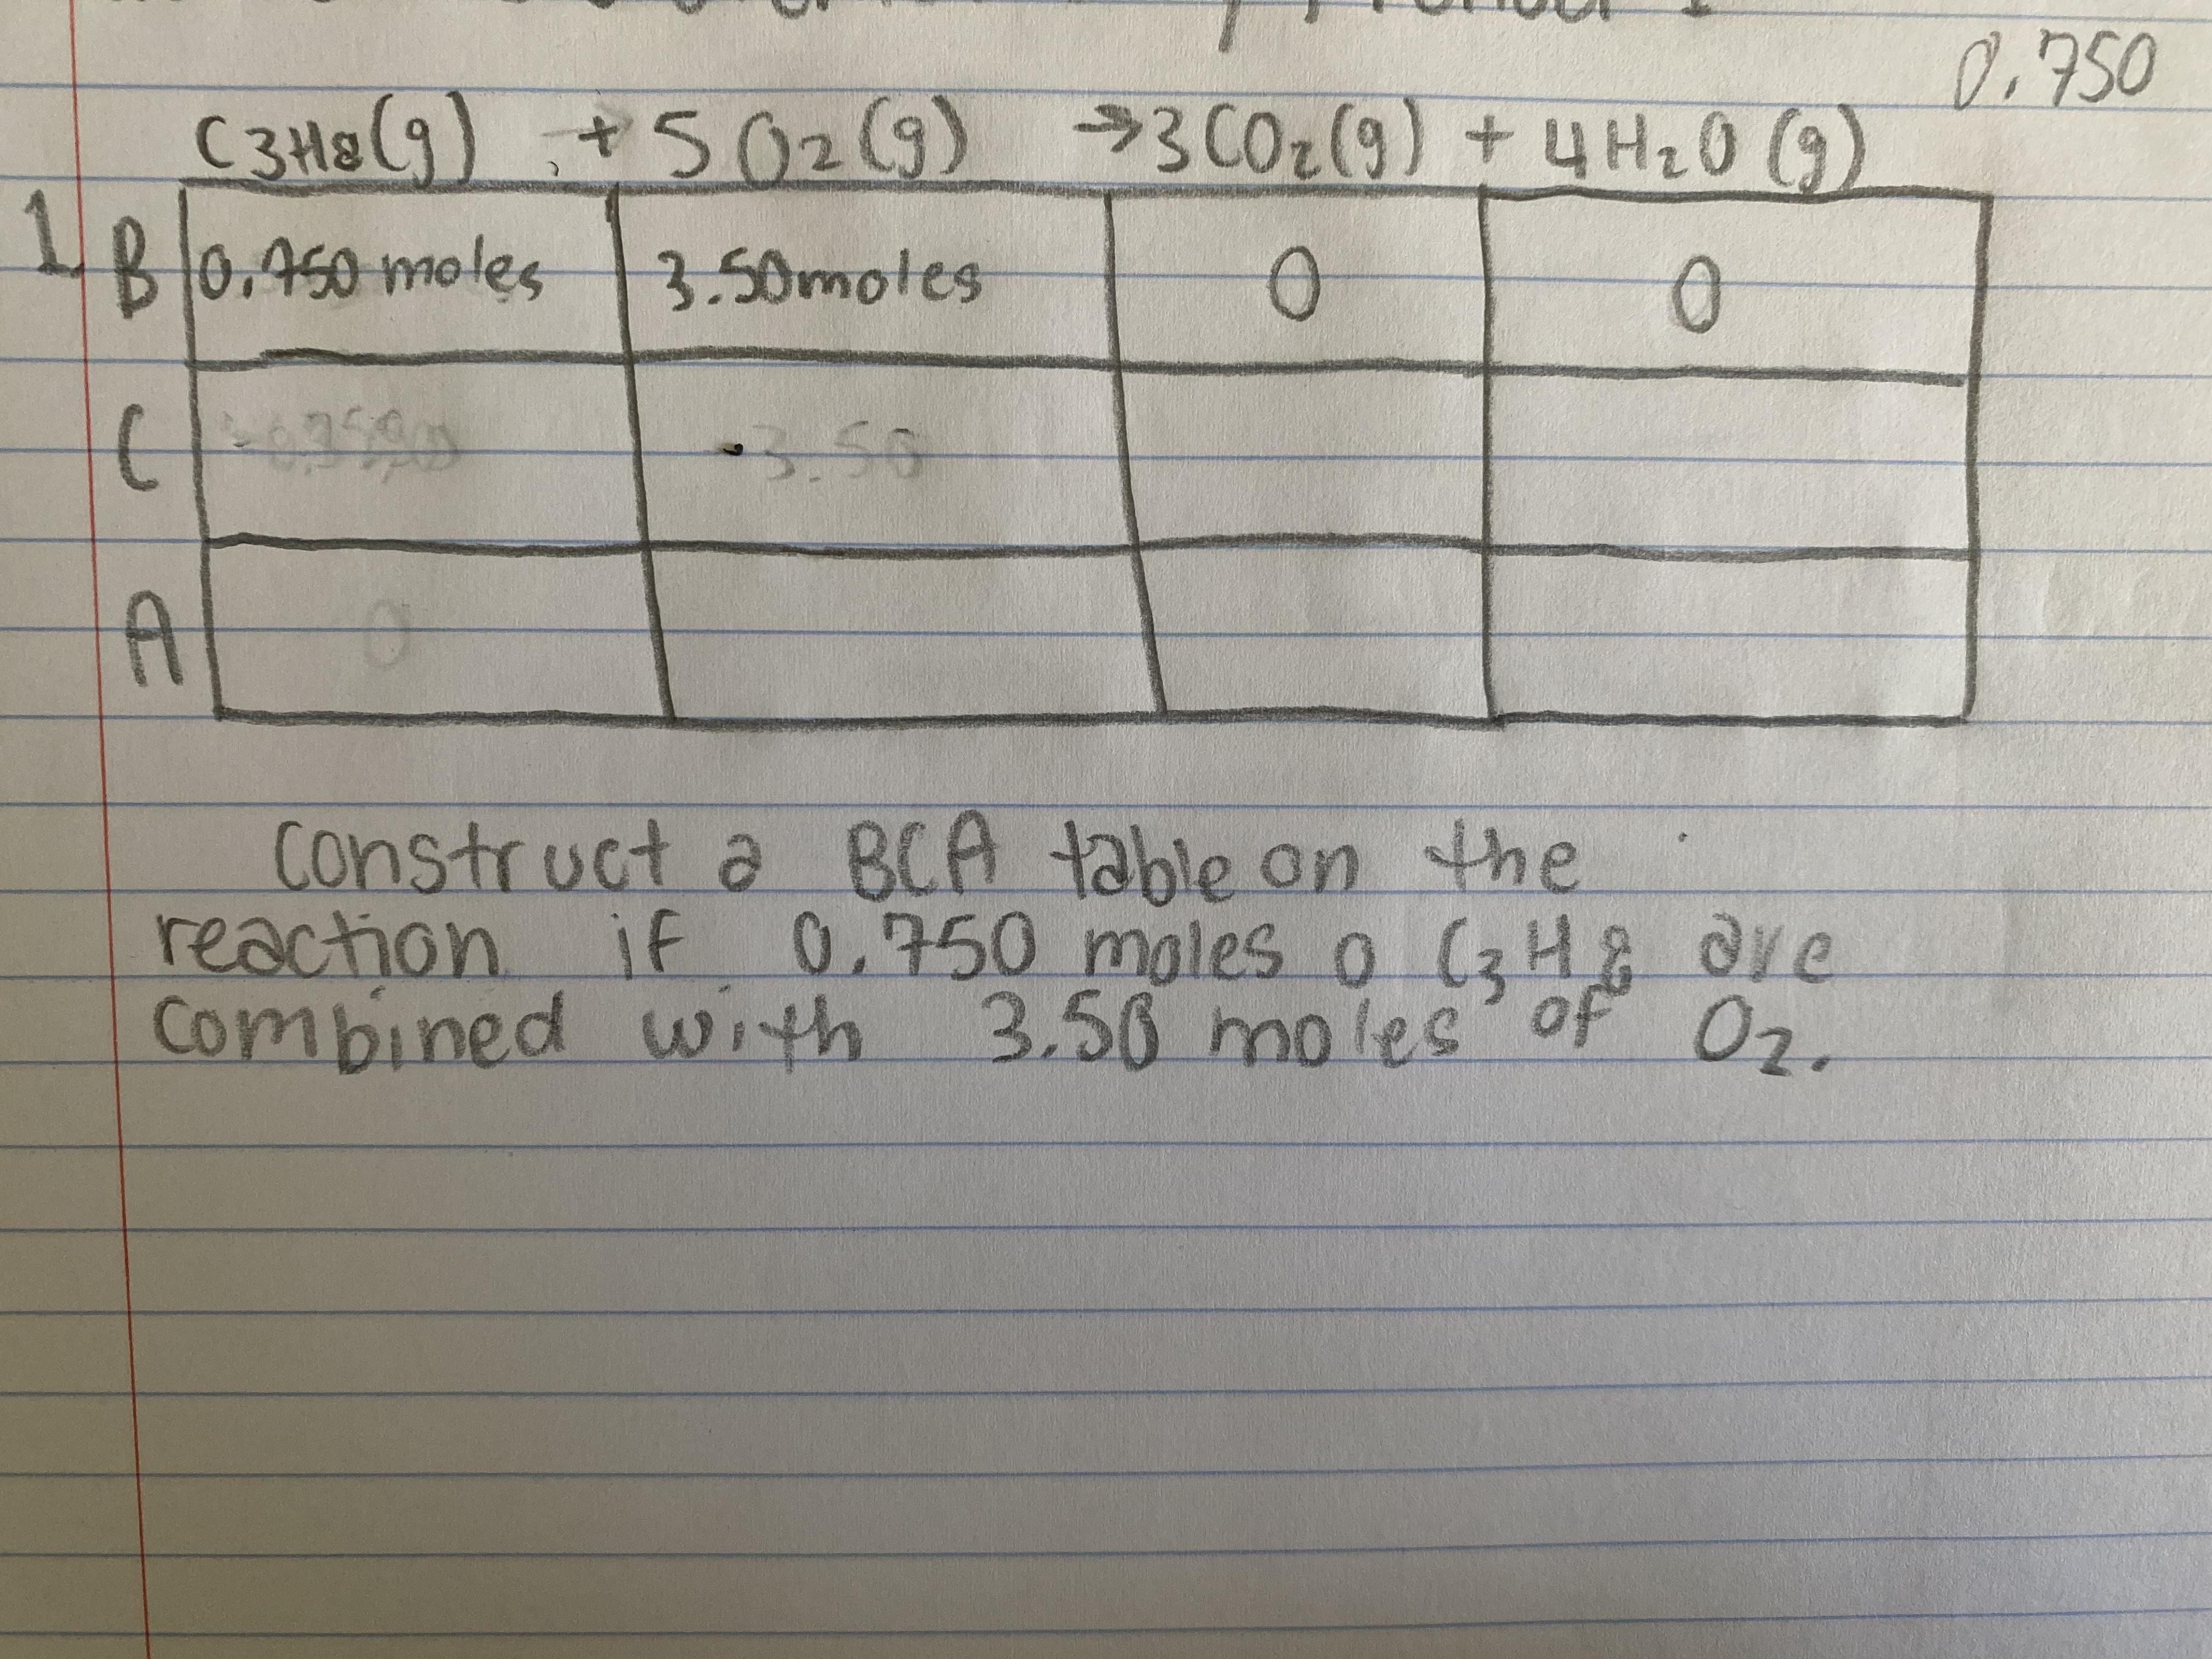 0.750
C3H8(g) + 5 O2 (g) → 3 CO2(g) + 4 H2O (g)
1. B 0.750 moles 3.50 moles 0 0
C - 3.50
A 0
construct a BCA table on the
reaction if 0.750 moles o C3H8 are
combined with 3.50 moles of O2.